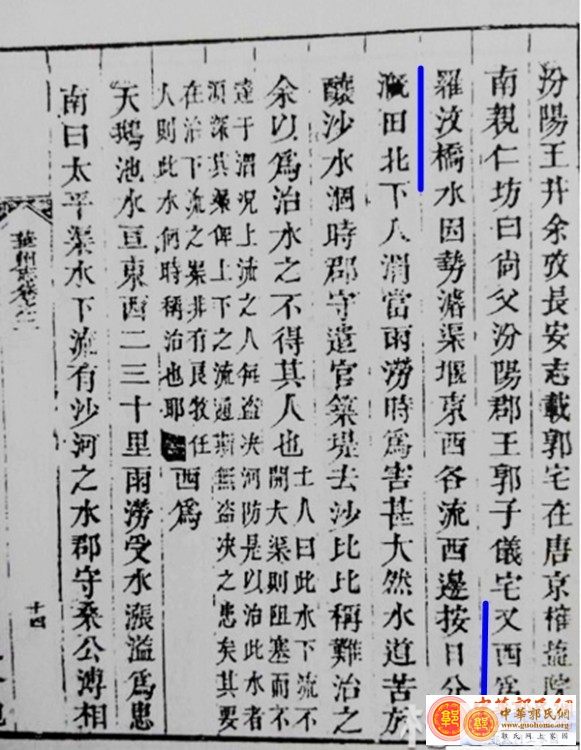 汾陽王井余攷長安志載郭宅在唐京榷鹽院
南親仁坊曰尚父汾陽郡王郭子儀宅又西為
羅汶橋水因勢濬渠堰東西各流西邊按日分
溉田北下入渭當雨澇時為害甚大然水道苦於
醙沙水涸時郡守遣官築堤去沙比比稱難治之
余以為治水之不得其人也
土人曰此水下流不
開大渠則阻塞而不
達于渭況上流之人每盜決河防是以治此水者
須深其渠俾上下之流通斯無盜決之患矣其要
在治下流之渠非有良牧任
人則此水何時稱治也耶
西為
天鵝池水亘東西二三十里雨澇受水漲溢為患
南曰太平渠水下流有沙河之水郡守桑公溥相
華州志卷之二
十四
中華郭氏網
郭氏網上家園